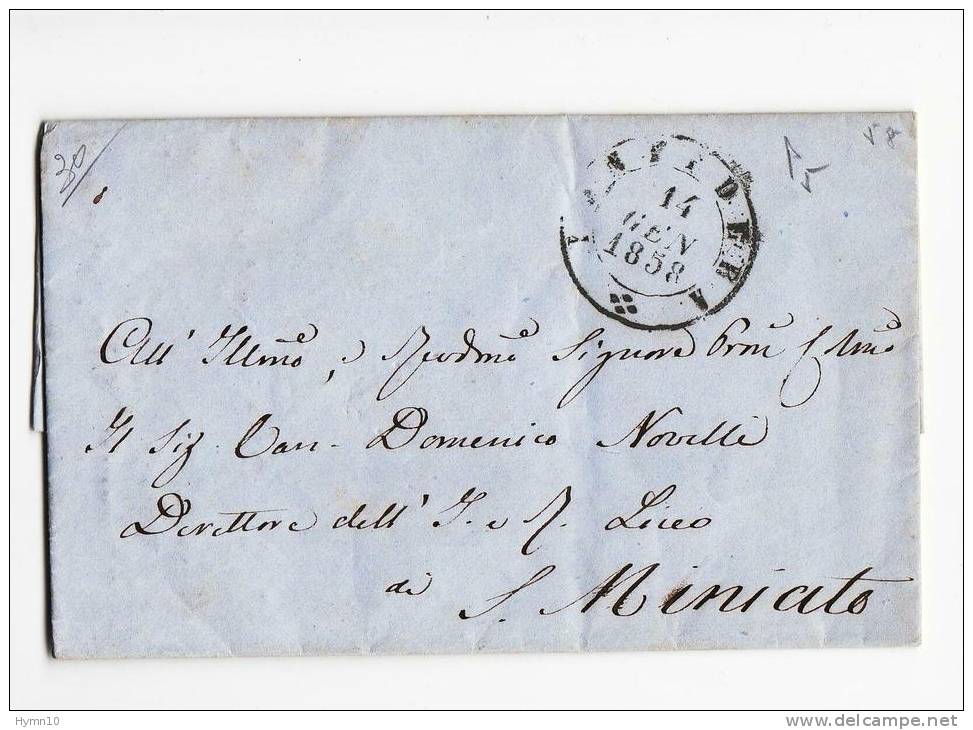 30
58
PONTEDERA
14
GEN
1858
All' Illmo, e Revdmo Signore Prõn Cõlmo
Il Sig Can- Domenico Novelli
Direttore dell' I. e R. Liceo
di S. Miniato
Hymn10
www.delcampe.net